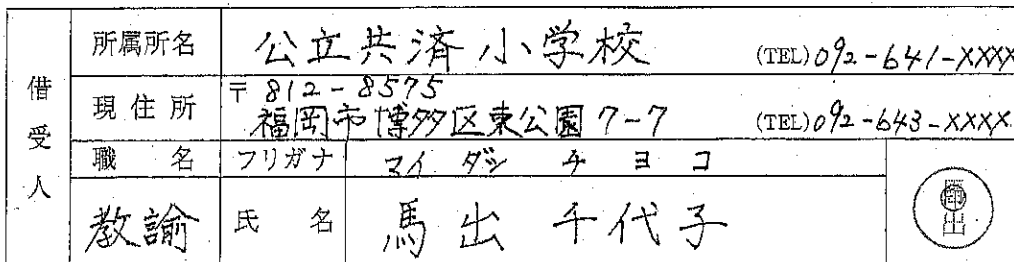 借受人
所属所名 公立共済小学校 (TEL) 092-641-XXXX
現住所 〒812-8575
福岡市博多区東公園7-7 (TEL) 092-643-XXXX
職名 フリガナ マイダシ チヨコ
教諭 氏名 馬出 千代子 馬出